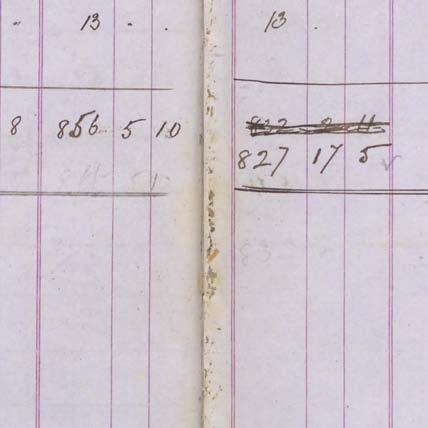 " 13 . .
8 856 5 10
13 .
832 2 11
827 17 5